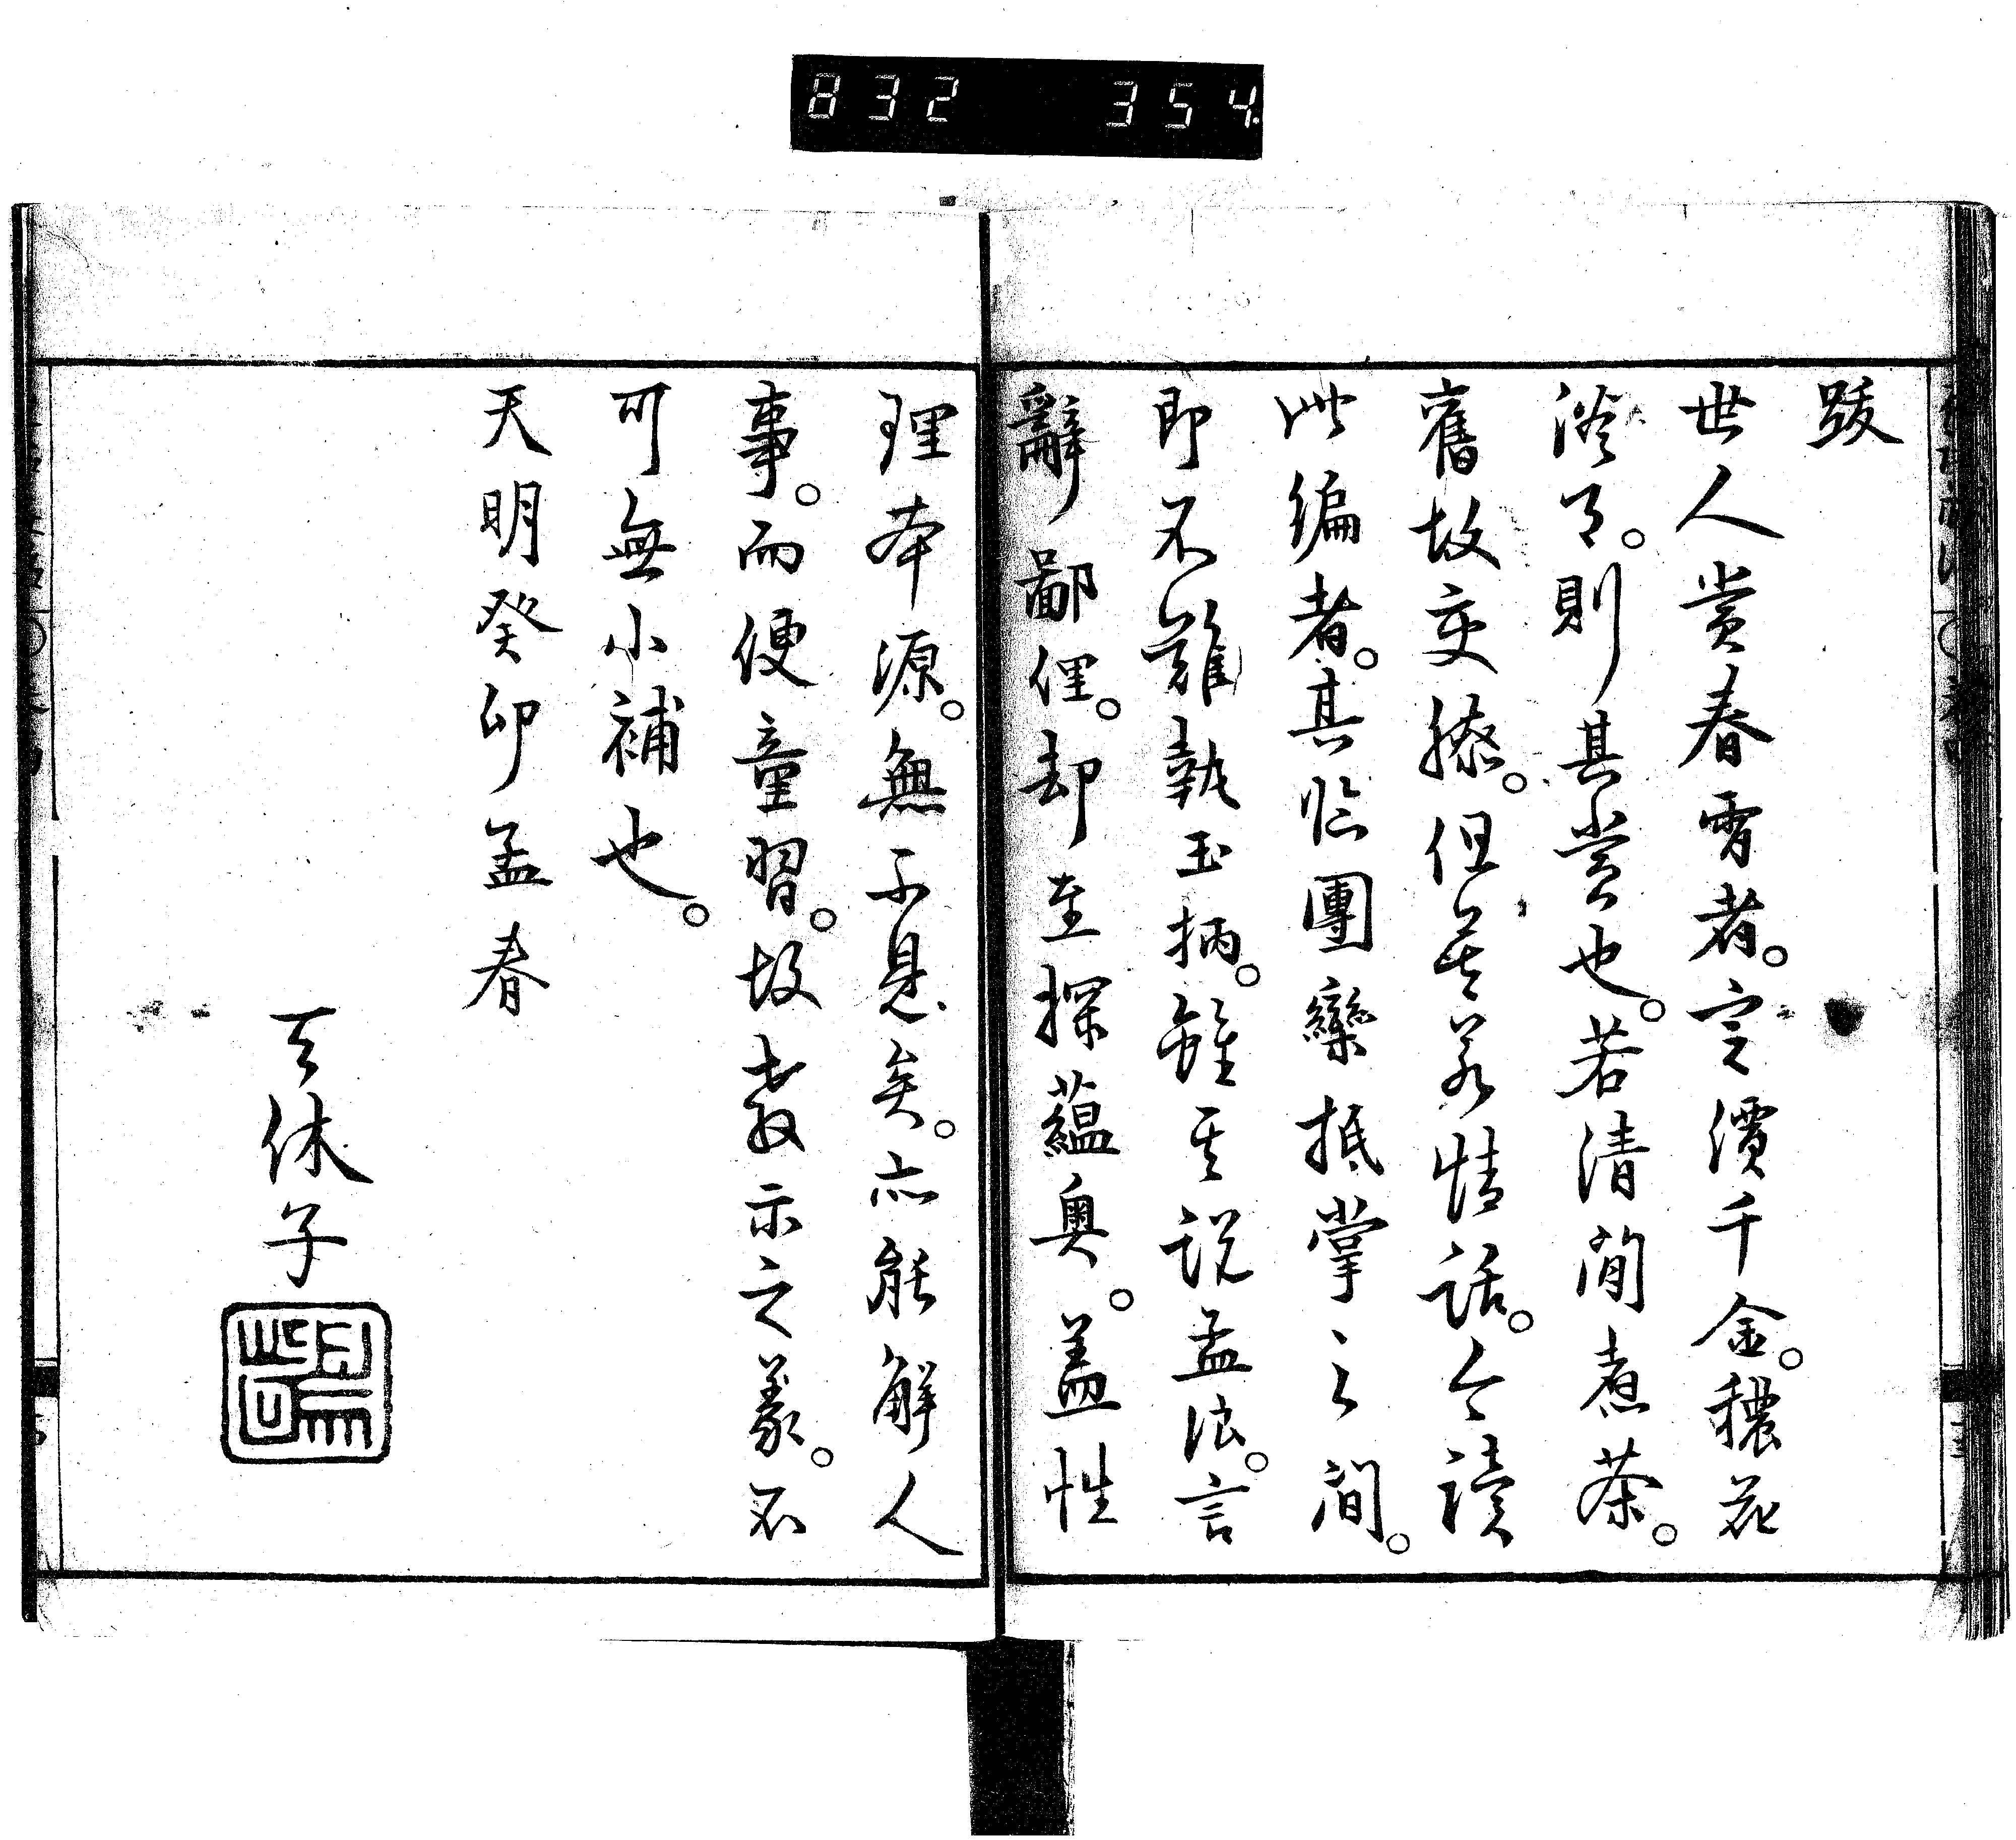 832 354
跋
世人賞春宵者。定價千金。穠花
淡月。則其賞也。若清簡煮茶。
舊故交膝。但是若情話。今讀
此編者。其於團欒抵掌之間。
即不難執玉柄。雖其說孟浪。言
辭鄙俚。却至探蘊奧。蓋性
理本源。無不是矣。亦能解人
事。而便童習。故教示之義。不
可無小補也。
天明癸卯孟春
天休子